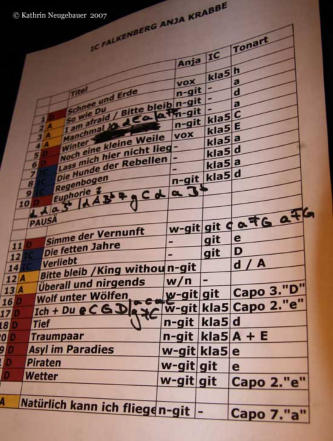 © Kathrin Neugebauer 2007
IC FALKENBERG ANJA KRABBE
Titel Anja IC Tonart
Schnee und Erde vox kla5 h
So wie Du n-git - a
I am afraid / Bitte bleib n-git - d
Manchmal
Winter
Noch eine kleine Weile vox kla5 E
Lass mich hier nicht lieg
Die Hunde der Rebellen - kla5
Regenbogen - kla5
10 D Euphorie n-git kla5
PAUSA
11 D Simme der Vernunft w-git git
Die fetten Jahre - git e
Verliebt - git D
A Bitte bleib /King withou n-git d / A
13 A Überall und nirgends w/n -
16 D Wolf unter Wölfen w-git git Capo 3."D"
17 D Ich + Du w-git kla5 Capo 2."e"
18 D Tief n-git kla5 d
D Traumpaar n-git kla5 A + E
D Asyl im Paradies w-git kla5 e
D Piraten w-git git e
D Wetter w-git git Capo 2."e"
A Natürlich kann ich fliege n-git - Capo 7."a"